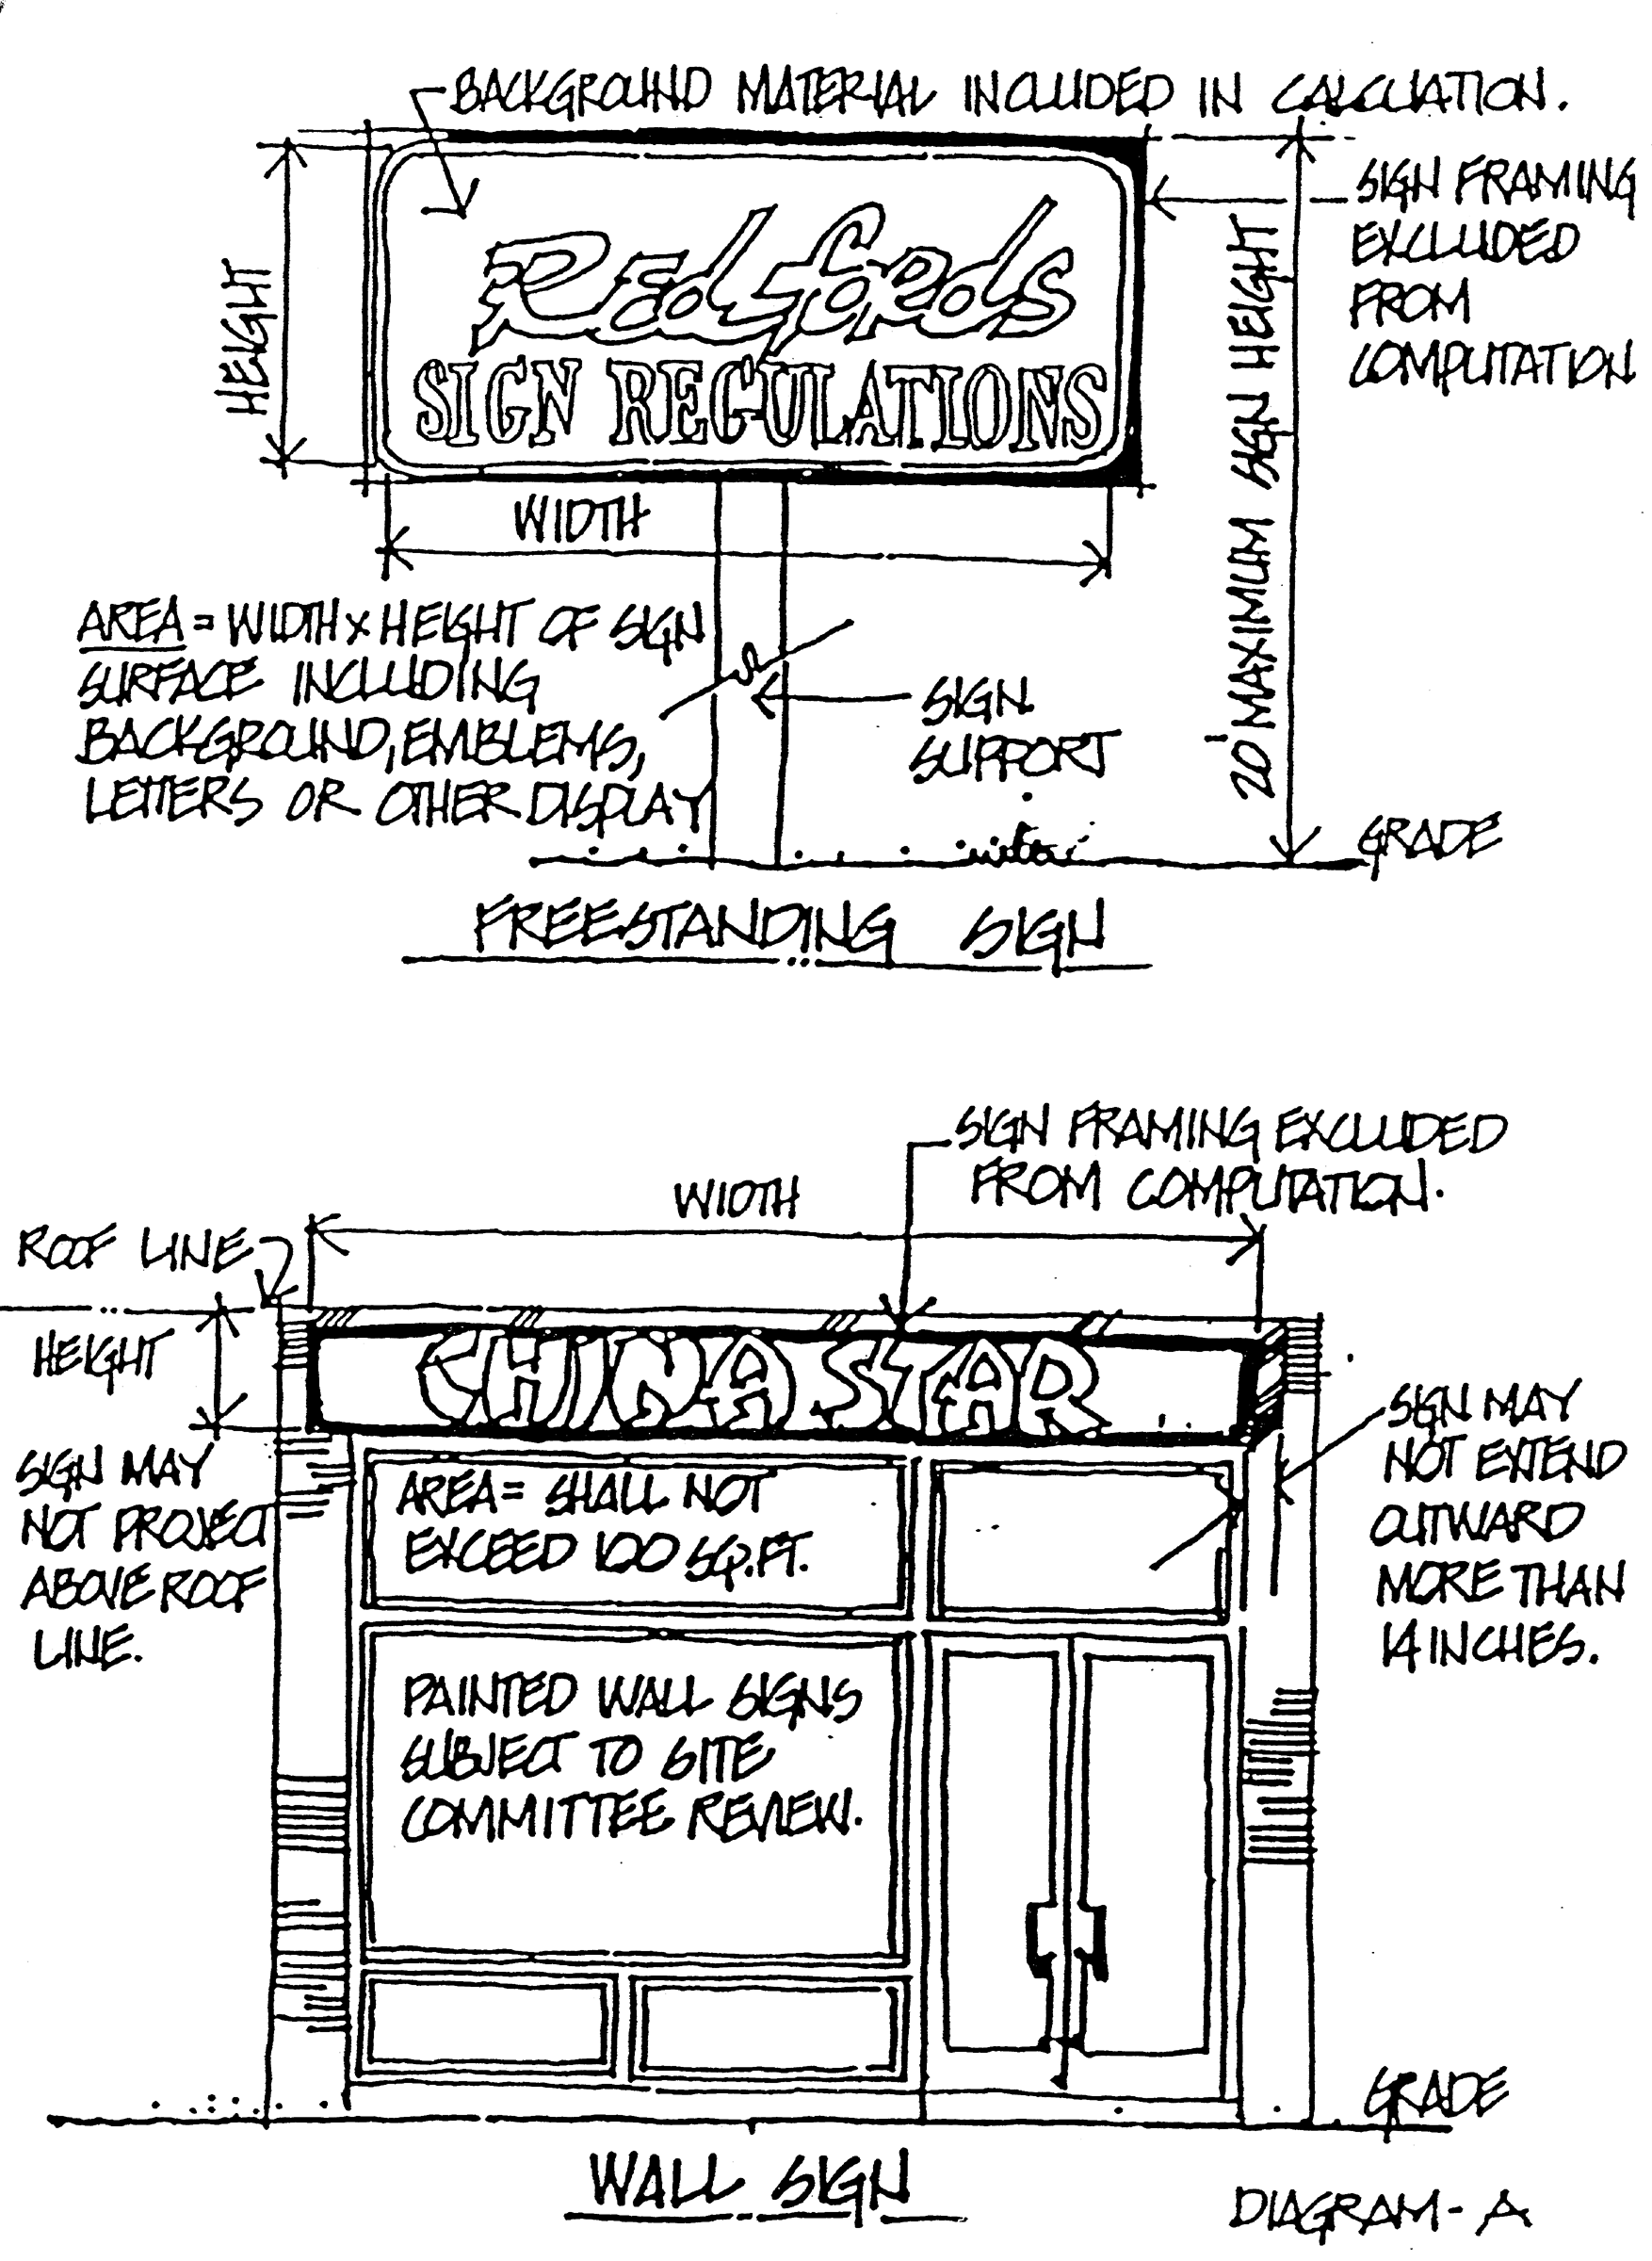 BACKGROUND MATERIAL INCLUDED IN CALCULATION.
SIGN FRAMING
EXCLUDED
FROM
COMPUTATION
HEIGHT
Redfords
SIGN REGULATIONS
20' MAXIMUM SIGN HEIGHT
WIDTH
AREA = WIDTH x HEIGHT OF SIGN
SURFACE INCLUDING
BACKGROUND, EMBLEMS,
LETTERS OR OTHER DISPLAY
SIGN
SUPPORT
GRADE
FREESTANDING SIGN
SIGN FRAMING EXCLUDED
FROM COMPUTATION.
WIDTH
ROOF LINE
HEIGHT
CHINA STAR
SIGN MAY
NOT PROJECT
ABOVE ROOF
LINE.
AREA = SHALL NOT
EXCEED 100 SQ.FT.
SIGN MAY
NOT EXTEND
OUTWARD
MORE THAN
14 INCHES.
PAINTED WALL SIGNS
SUBJECT TO SITE
COMMITTEE REVIEW.
GRADE
WALL SIGN
DIAGRAM - A